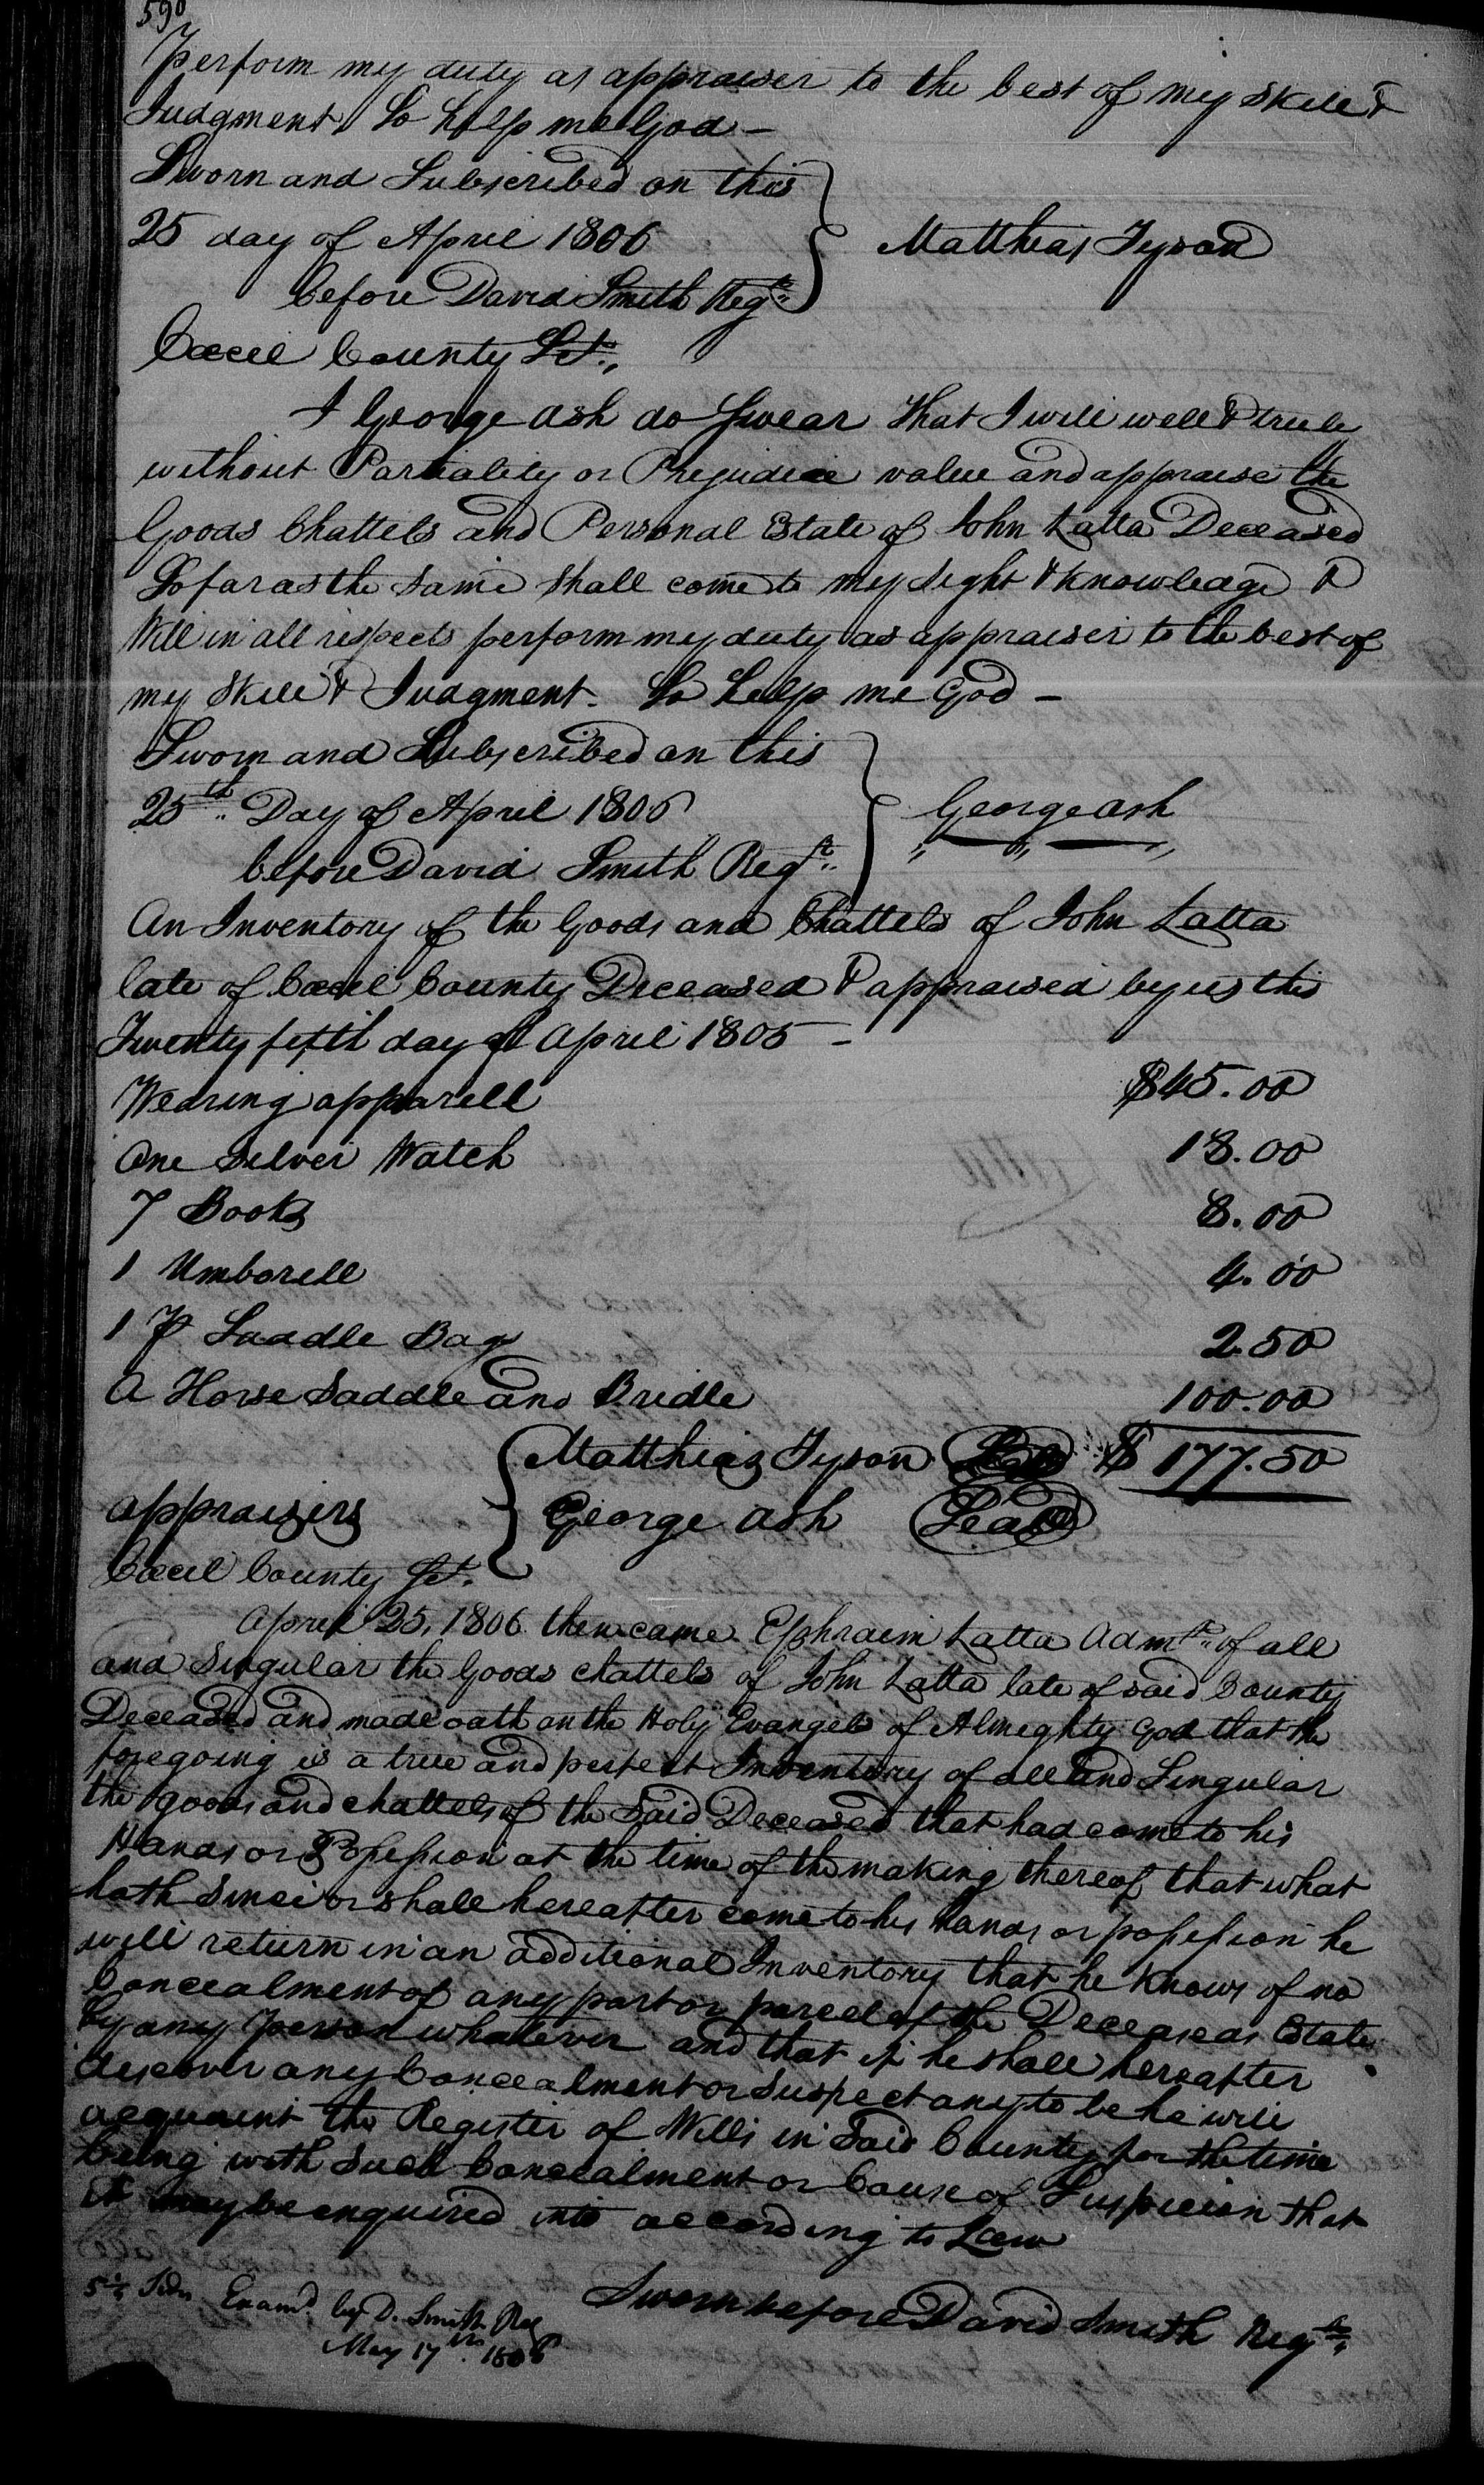 590
Perform my duty as appraiser to the best of my skill &
Judgment So help me God —
Sworn and Subscribed on this
25 day of April 1806
before David Smith Regtr
Matthias Tyson
Cecil County Sct.,
I George Ash do Swear that I will well & truly
without Partiality or Prejudice value and appraise the
Goods Chattels and Personal Estate of John Latta Deceased
So far as the same shall come to my sight & knowledge &
Will in all respects perform my duty as appraiser to the best of
my Skill & Judgment. So help me God —
Sworn and Subscribed on this
25th Day of April 1806
before David Smith Regtr
George Ash
An Inventory of the Goods and Chattels of John Latta
late of Cecil County Deceased & appraised by us this
Twenty fifth day of April 1806 —
Wearing apparell $45.00
One Silver Watch 18.00
7 Books 8.00
1 Umborell 4.00
1 P Saddle Bags 2.50
A Horse Saddle and Bridle 100.00
$ 177.50
appraizers
Matthias Tyson Seal
George Ash Seal
Cecil County Sct.
April 25, 1806 then came Ephraim Latta Admtr of all
and Singular the Goods chattels of John Latta late of said County
Deceased and made oath on the Holy Evangels of Almighty God that the
foregoing is a true and perfect Inventory of all and Singular
the goods and chattels of the Said Deceased that had come to his
Hands or Possession at the time of the making thereof that what
hath Since or shall hereafter come to his hands or possession he
will return in an additional Inventory that he knows of no
Concealment of any part or parcel of the Deceaseds Estate
by any Person whatever and that if he shall hereafter
discover any Concealment or suspect any to be he will
acquaint the Register of Wills in Said County for the time
being with Such Concealment or Cause of Suspicion that
it may be enquired into according to Law
Sworn before David Smith Regtr
5½ Sides Examd. by D. Smith Reg
May 17th 1806